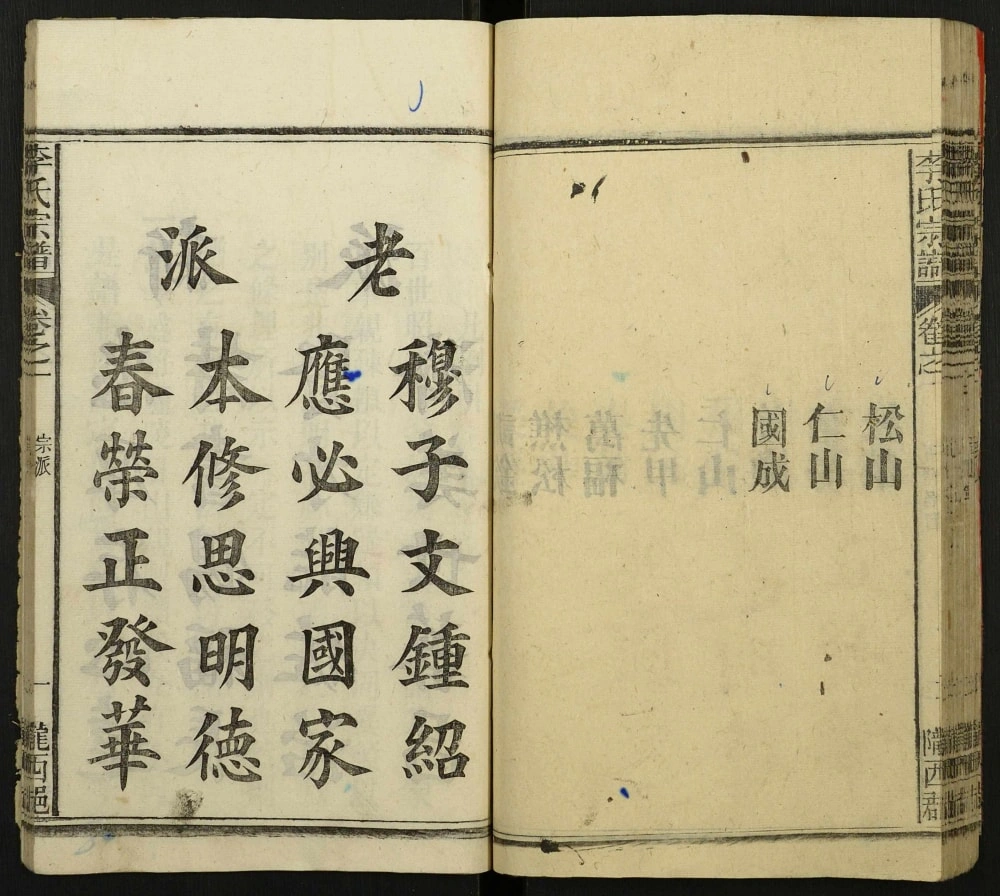 李氏宗譜
卷之一
隴西郡
松山
仁山
國成
老派
穆子文鍾紹
應必興國家
本修思明德
春榮正發華
李氏宗譜
卷之一
宗派
一
隴西